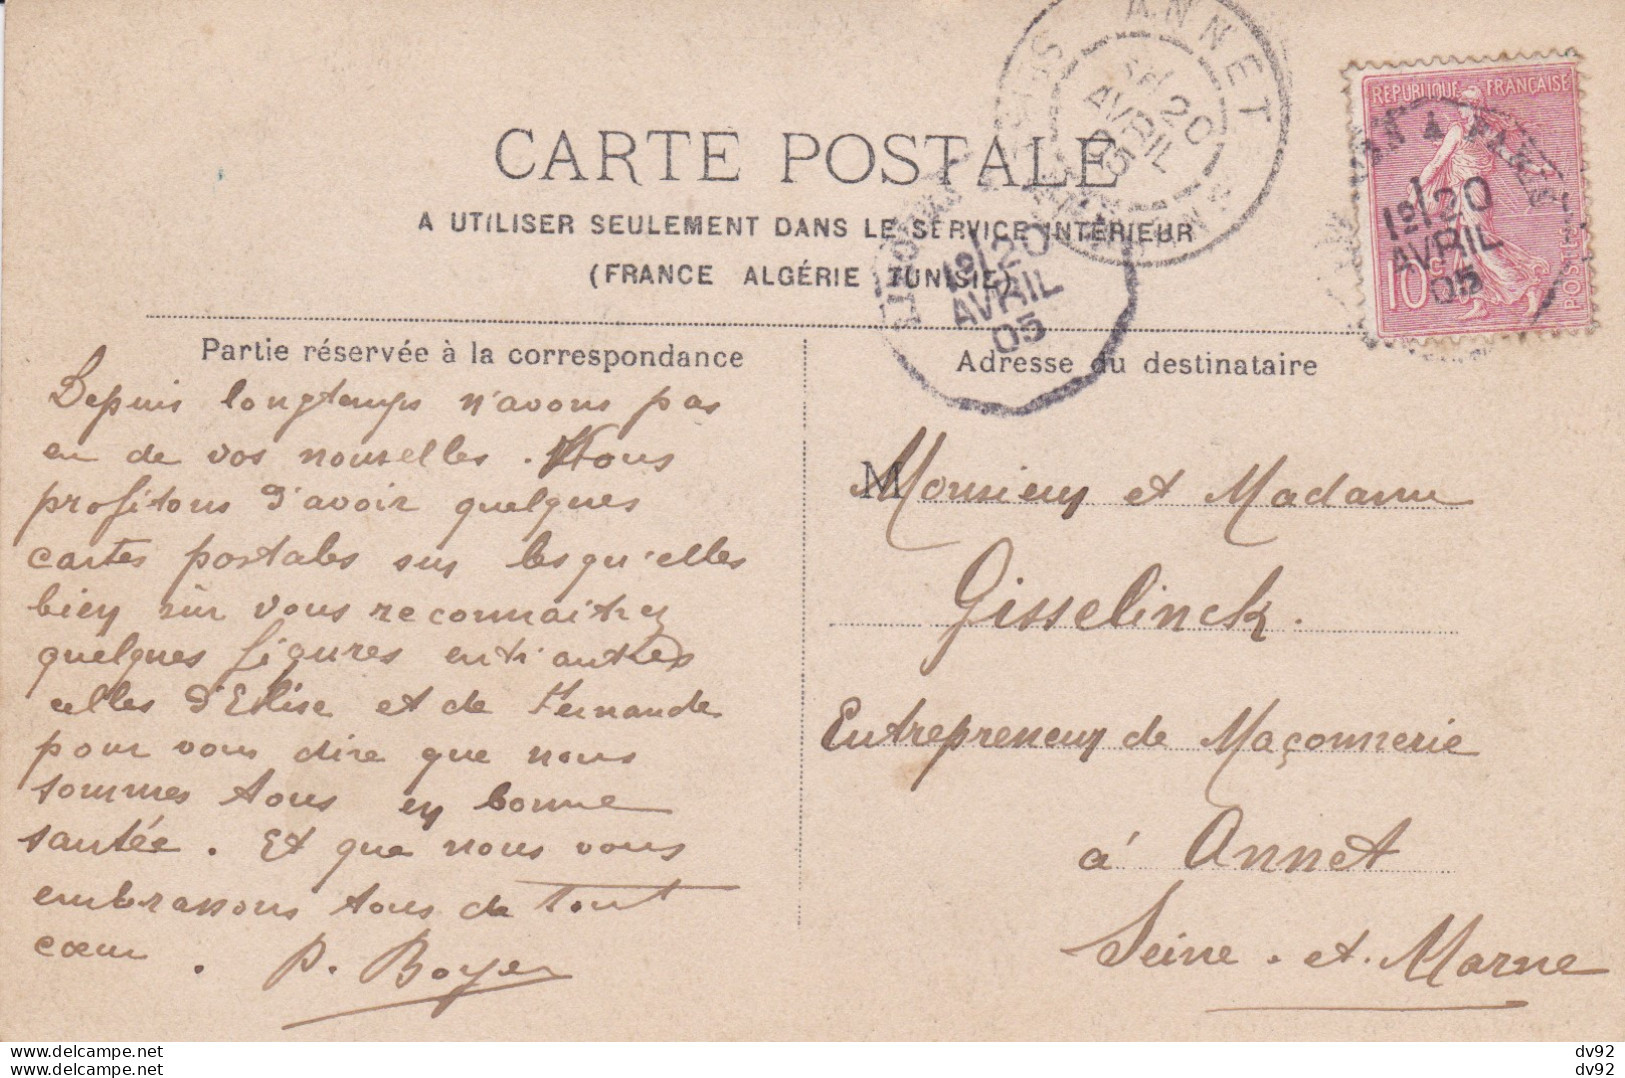 CARTE POSTALE
A UTILISER SEULEMENT DANS LE SERVICE INTÉRIEUR
(FRANCE ALGÉRIE TUNISIE)
ANNET
20
AVRIL
05
SEINE
1º/20
AVRIL
05
RÉPUBLIQUE FRANÇAISE
1º/20
AVRIL
05
10c
POSTES
Partie réservée à la correspondance
Depuis longtemps n'avons pas
eu de vos nouvelles. Nous
profitons d'avoir quelques
cartes postales sur lesqu'elles
bien sûr vous reconnaitrez
quelques figures entr'autres
celles d'Elise et de Fernande
pour vous dire que nous
sommes tous en bonne
santée. Et que nous vous
embrassons tous de tout
cœur. P. Boyer
Adresse du destinataire
Monsieur et Madame
Gisselinck.
Entrepreneur de Maçonnerie
à Annet
Seine-et-Marne
dv92
dv92